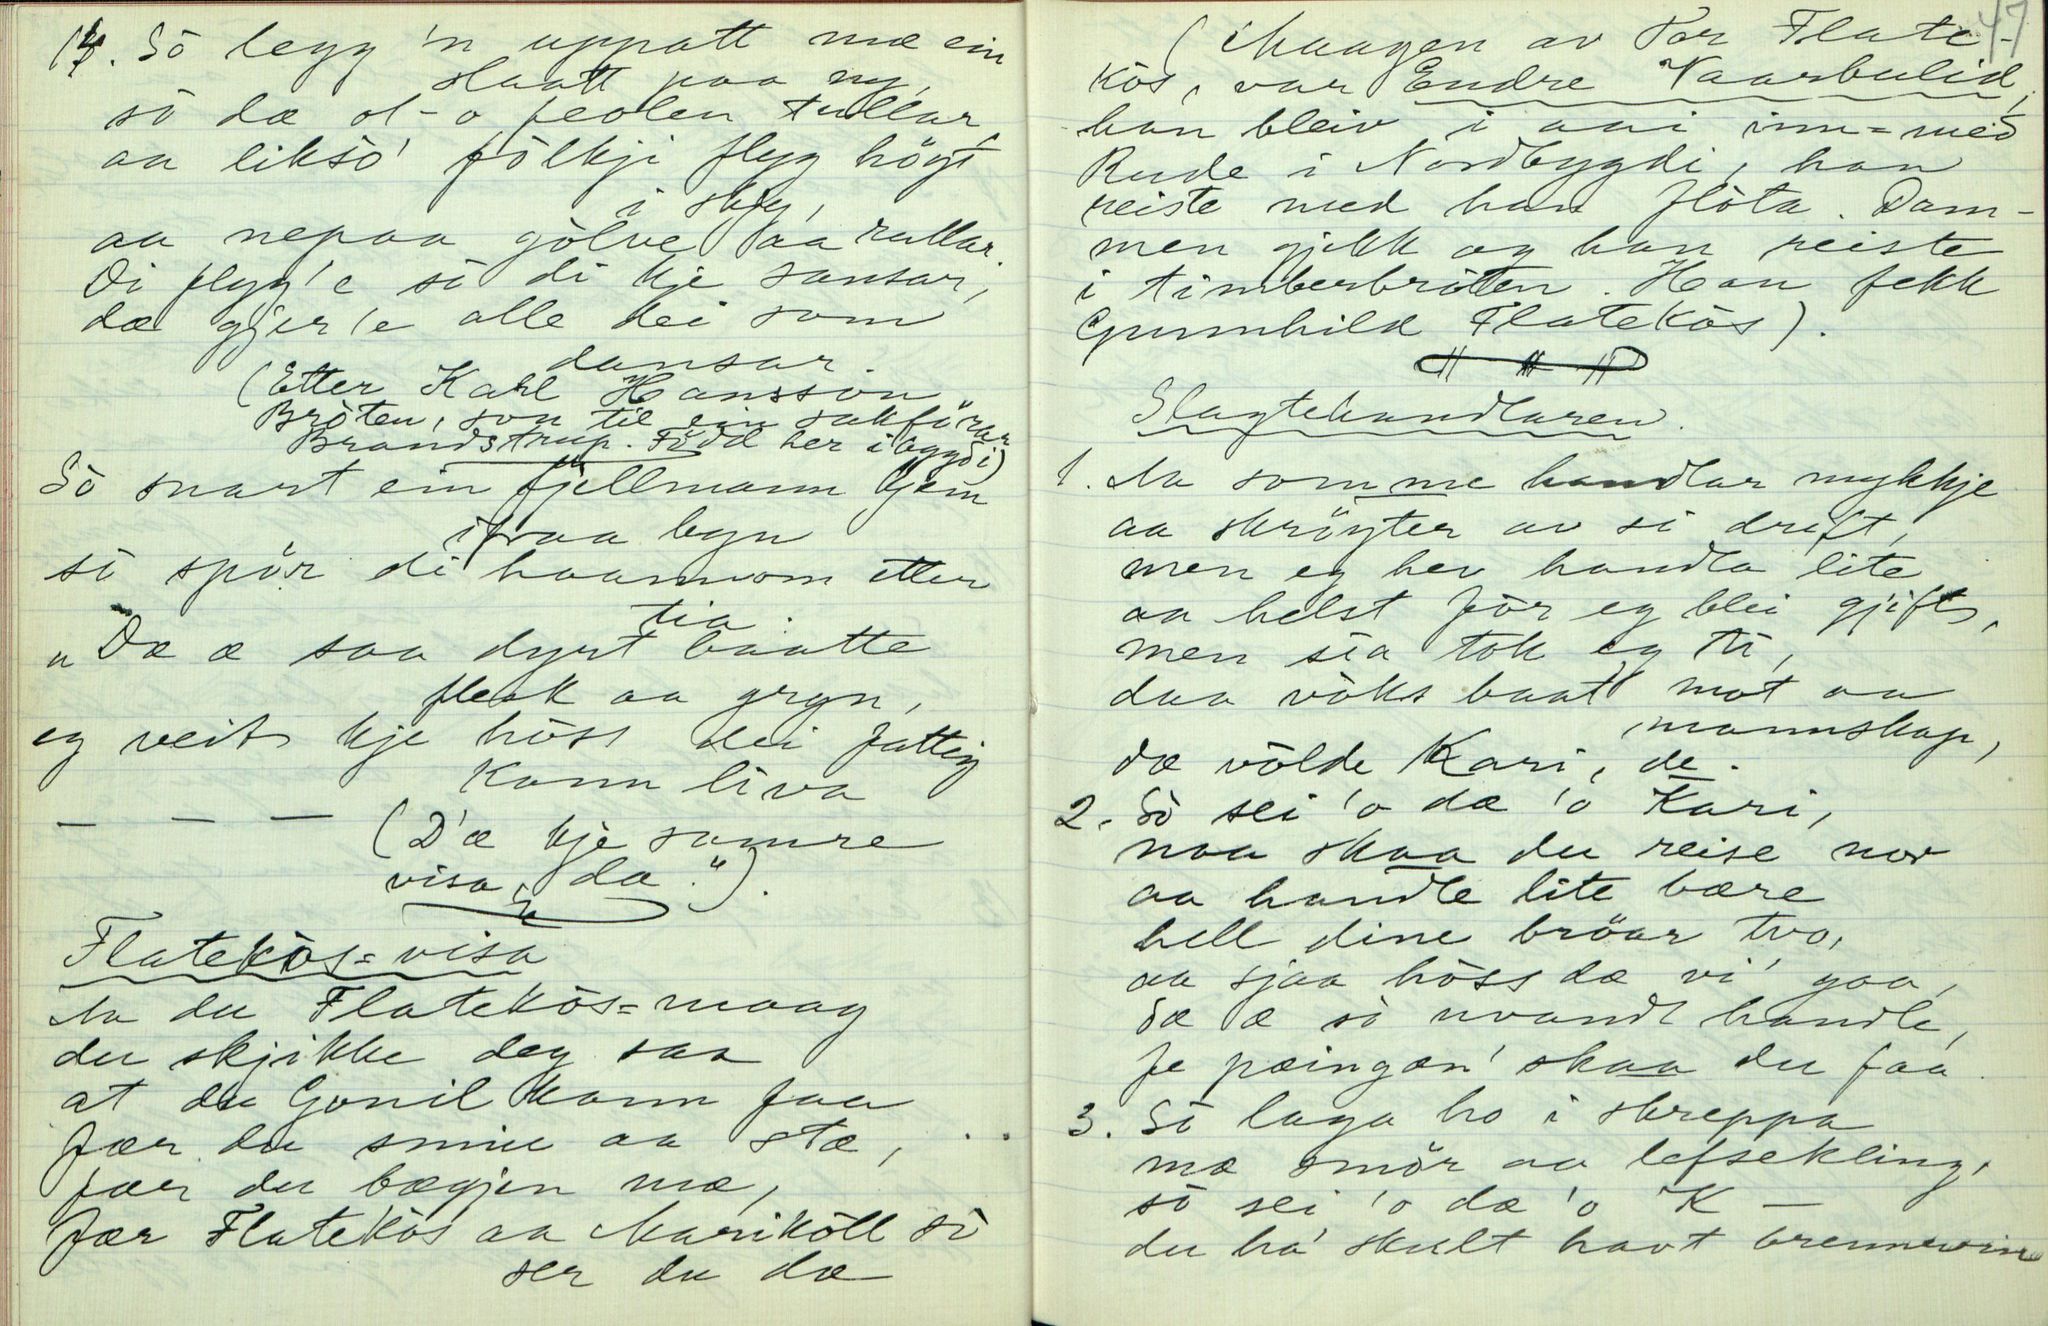 14. Sò legg 'n uppatt mæ ein
slaatt paa ny,
sò dæ ol-o feolen tullar,
aa liksò' fòlkji flyg högt
i sky,
aa nepaa gòlve aa rullar.
Di flyg'e sò di kje sansar,
dæ gjer'e alle dei som
dansar.
(Etter Karl Hansson
Bròten, son til ein sakförar
Brandstrup. Född her i bygdi)
Sò snart ein fjellmann kjem
ifraa byn
sò spör di haannom etter
tia.
"Dæ æ saa dyrt baatte
flesk aa gryn,
eg veit kje höss dei fattig
kann liva
— — — (D'æ kje somre
visa, da.").
Flatekòs=visa
Aa du Flatekòs=maag
du skjikke deg saa
at du Gonil kann faa
fær du smiu aa stæ,
fær du bægjen mæ,
fær Flatekòs aa Marikòll sò
ser du dæ
47
(Maagen av Tor Flate-
kòs, var Endre Vaarbulid,
han bleiv i aai inn=med
Rude i Nordbygdi, han
reiste med han flòta. Dam-
men gjekk og han reiste
i timberbròten. Han fekk
Gunnhild Flatekòs).
Slagtehandlaren.
1. Aa somme handlar mykkje
aa skröyter av si drift,
men eg hev handla lite
aa helst för eg blei gjift,
men sia tok eg ti,
daa vòks baat' mot aa
mannskap,
dæ vòlde Kari, de.
2. Sò sei 'o dæ 'o Kari,
naa skaa du reise nor
aa handle lite bære
hell dine bröar tvo,
aa sjaa höss dæ vi' gaa,
dæ æ sò uvandt handle,
fe pæingan' skaa du faa.
3. Sò laga ho i skreppa
mæ smör aa lefsekling,
sò sei 'o dæ 'o K —
du há skult havt brennevin